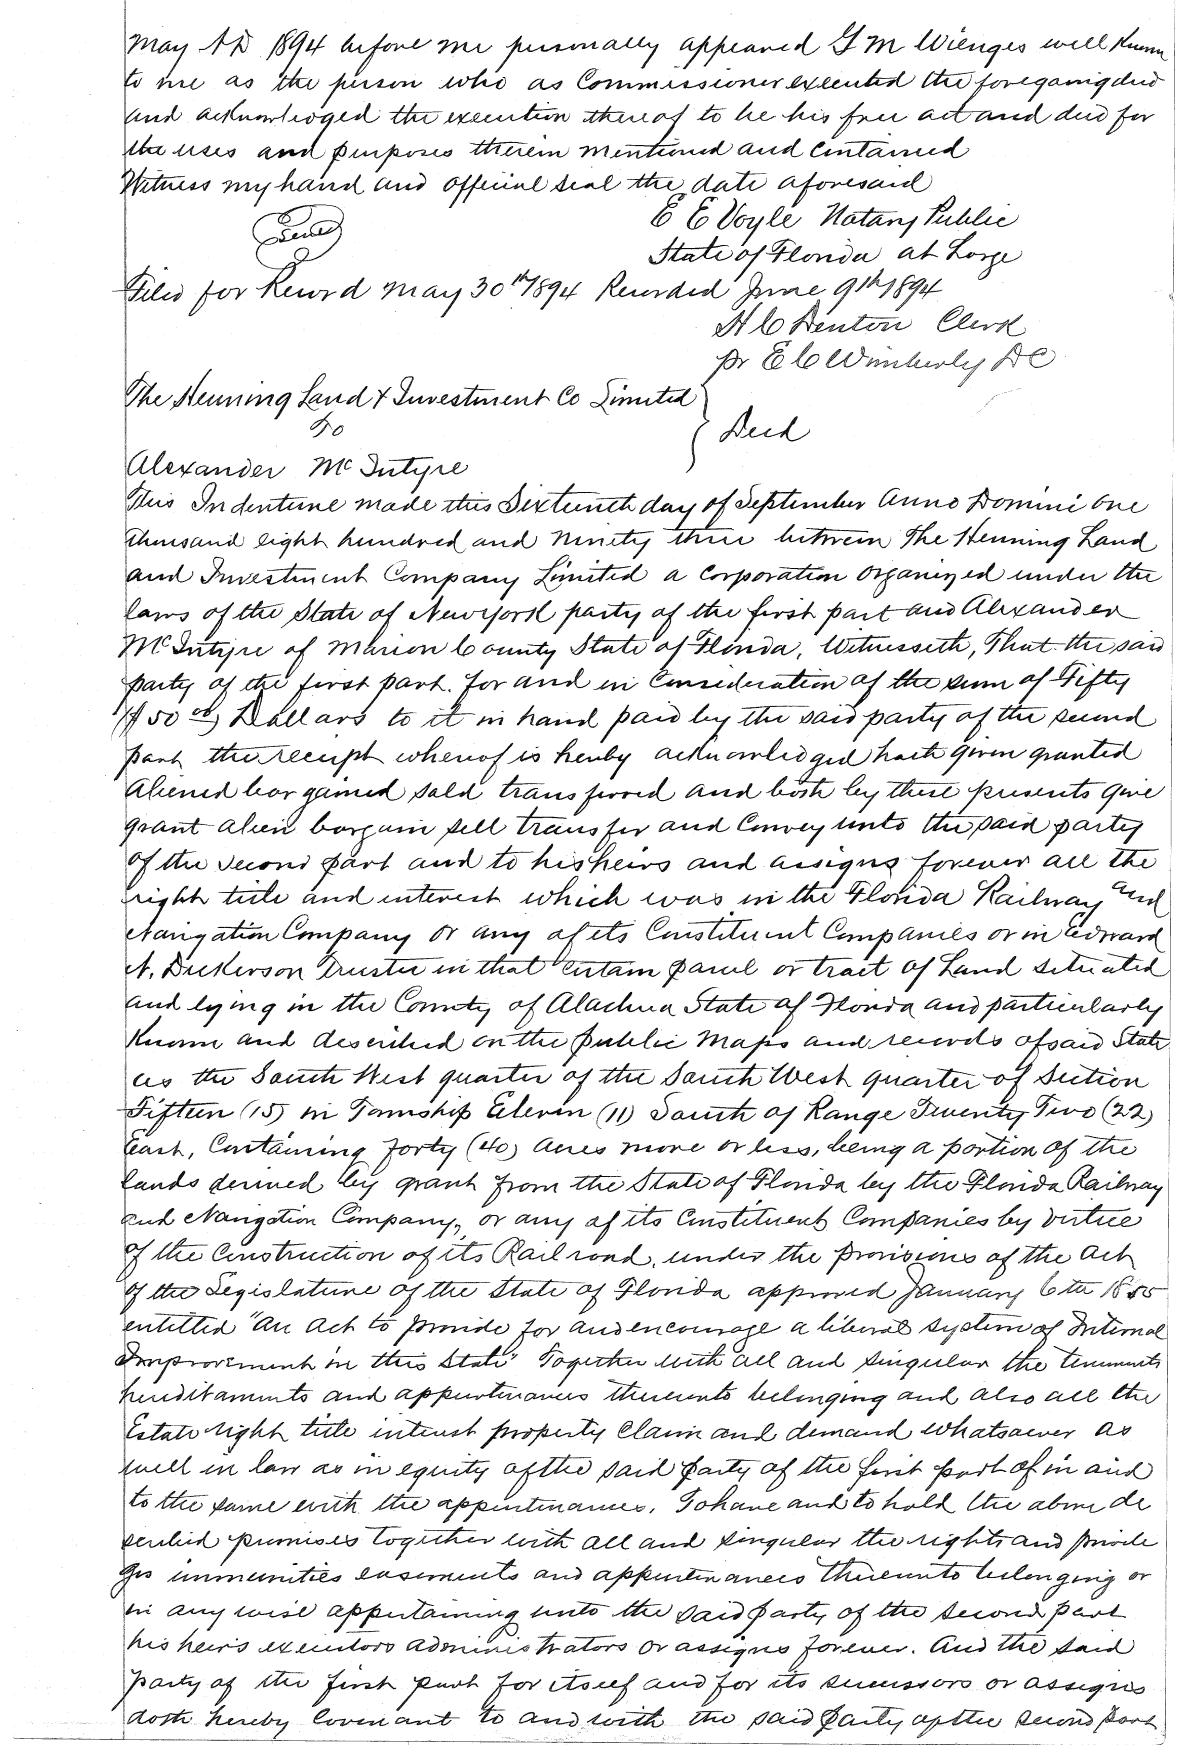 May AD 1894 before me personally appeared G M Wienges well Known
to me as the person who as Commissioner executed the foregoing deed
and acknowledged the execution thereof to be his free act and deed for
the uses and purposes therein mentioned and contained
Witness my hand and official seal the date aforesaid
E E Voyle Notary Public
Seal
State of Florida at Large
Filed for Record May 30th 1894 Recorded June 9th 1894
H C Denton Clerk
pr E C Wimberly DC
The Henning Land & Investment Co Limited
To
Deed
Alexander McIntyre
This Indenture made this Sixteenth day of September Anno Domini one
thousand eight hundred and Ninety three between The Henning Land
and Investment Company Limited a Corporation Organized under the
laws of the State of Newyork party of the first part and Alexander
McIntyre of Marion County State of Florida, Witnesseth, That the said
party of the first part. for and in Consideration of the sum of Fifty
($50 00) Dollars to it in hand paid by the said party of the second
part the receipt whereof is hereby acknowledged hath given granted
aliened bargained sold transferred and doth by these presents give
grant alien bargain sell transfer and Convey unto the said party
of the second part and to his heirs and assigns forever all the
right title and interest which was in the Florida Railway and
Navigation Company or any of its Constituent Companies or in Edward
N. Dickerson Trustee in that certain parcel or tract of Land situated
and lying in the County of Alachua State of Florida and particularly
Known and described on the public Maps and records of said State
as the South West quarter of the South West quarter of Section
Fifteen (15) in Township Eleven (11) South of Range Twenty Two (22)
East, Containing forty (40) acres more or less, being a portion of the
lands derived by grant from the State of Florida by the Florida Railway
and Navigation Company, or any of its Constituent Companies by virtue
of the Construction of its Railroad, under the provisions of the Act
of the Legislature of the State of Florida approved January 6th 1855
entitled "An Act to provide for and encourage a liberal system of Internal
Improvement in this State" Together with all and singular the tenements
hereditaments and appurtenances thereunto belonging and also all the
Estate right title interest property Claim and demand whatsoever as
well in law as in equity of the said party of the first part of in and
to the same with the appurtenances. To have and to hold the above de
scribed premises together with all and singular the rights and privile
ges immunities easements and appurtenances thereunto belonging or
in any wise appertaining unto the said party of the second part
his heirs executors administrators or assigns forever. And the said
party of the first part for itself and for its successors or assigns
doth hereby Covenant to and with the said party of the second part